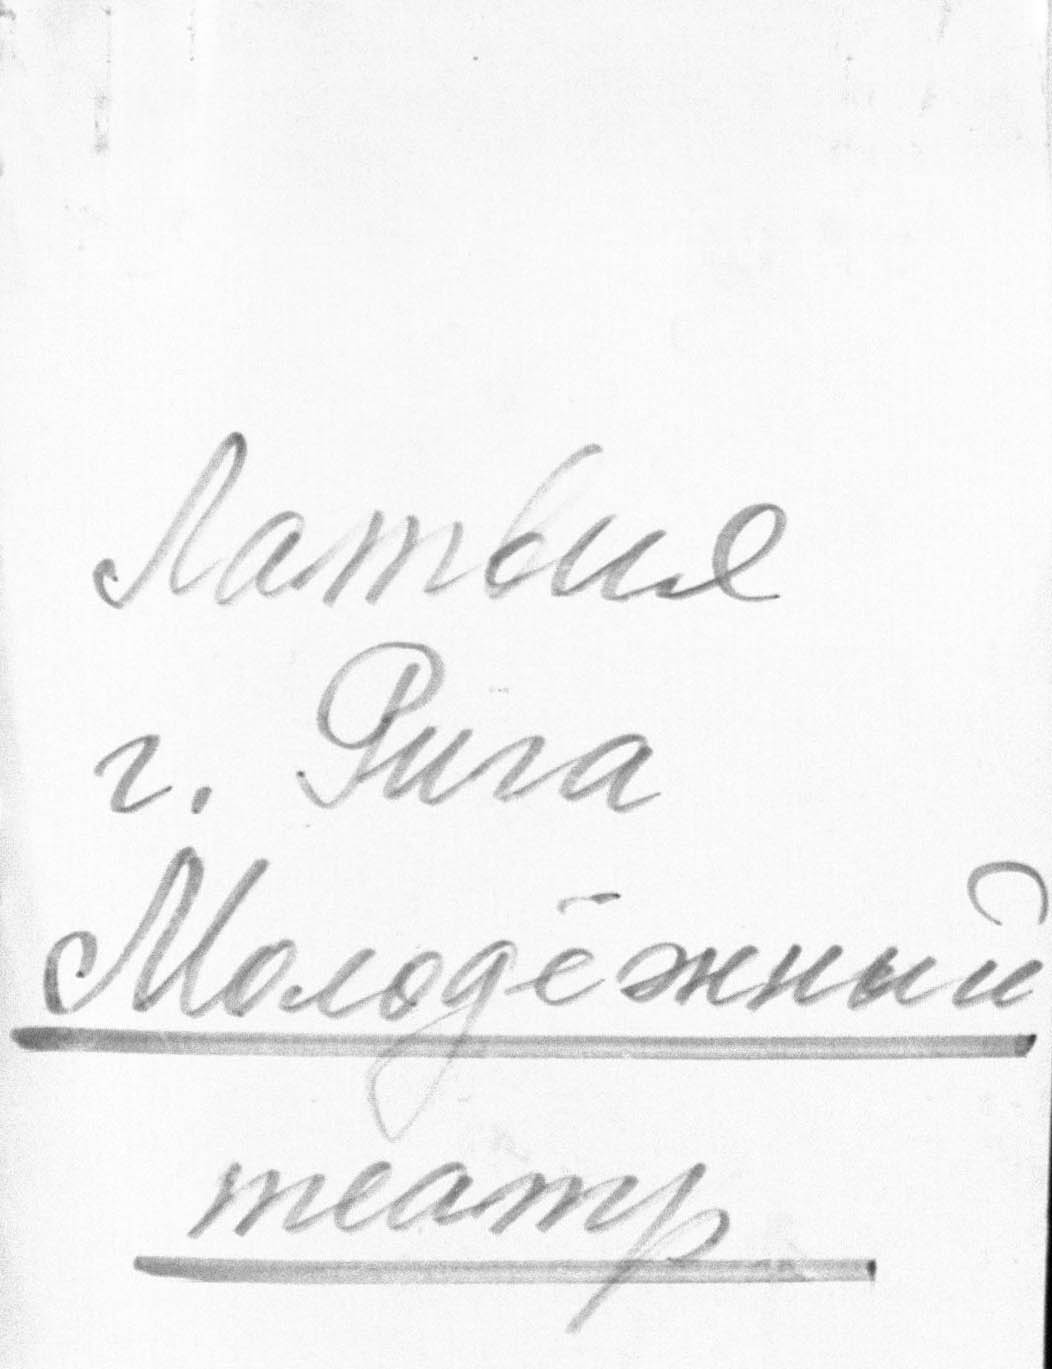 Латвия
г. Рига
Молодёжный
театр